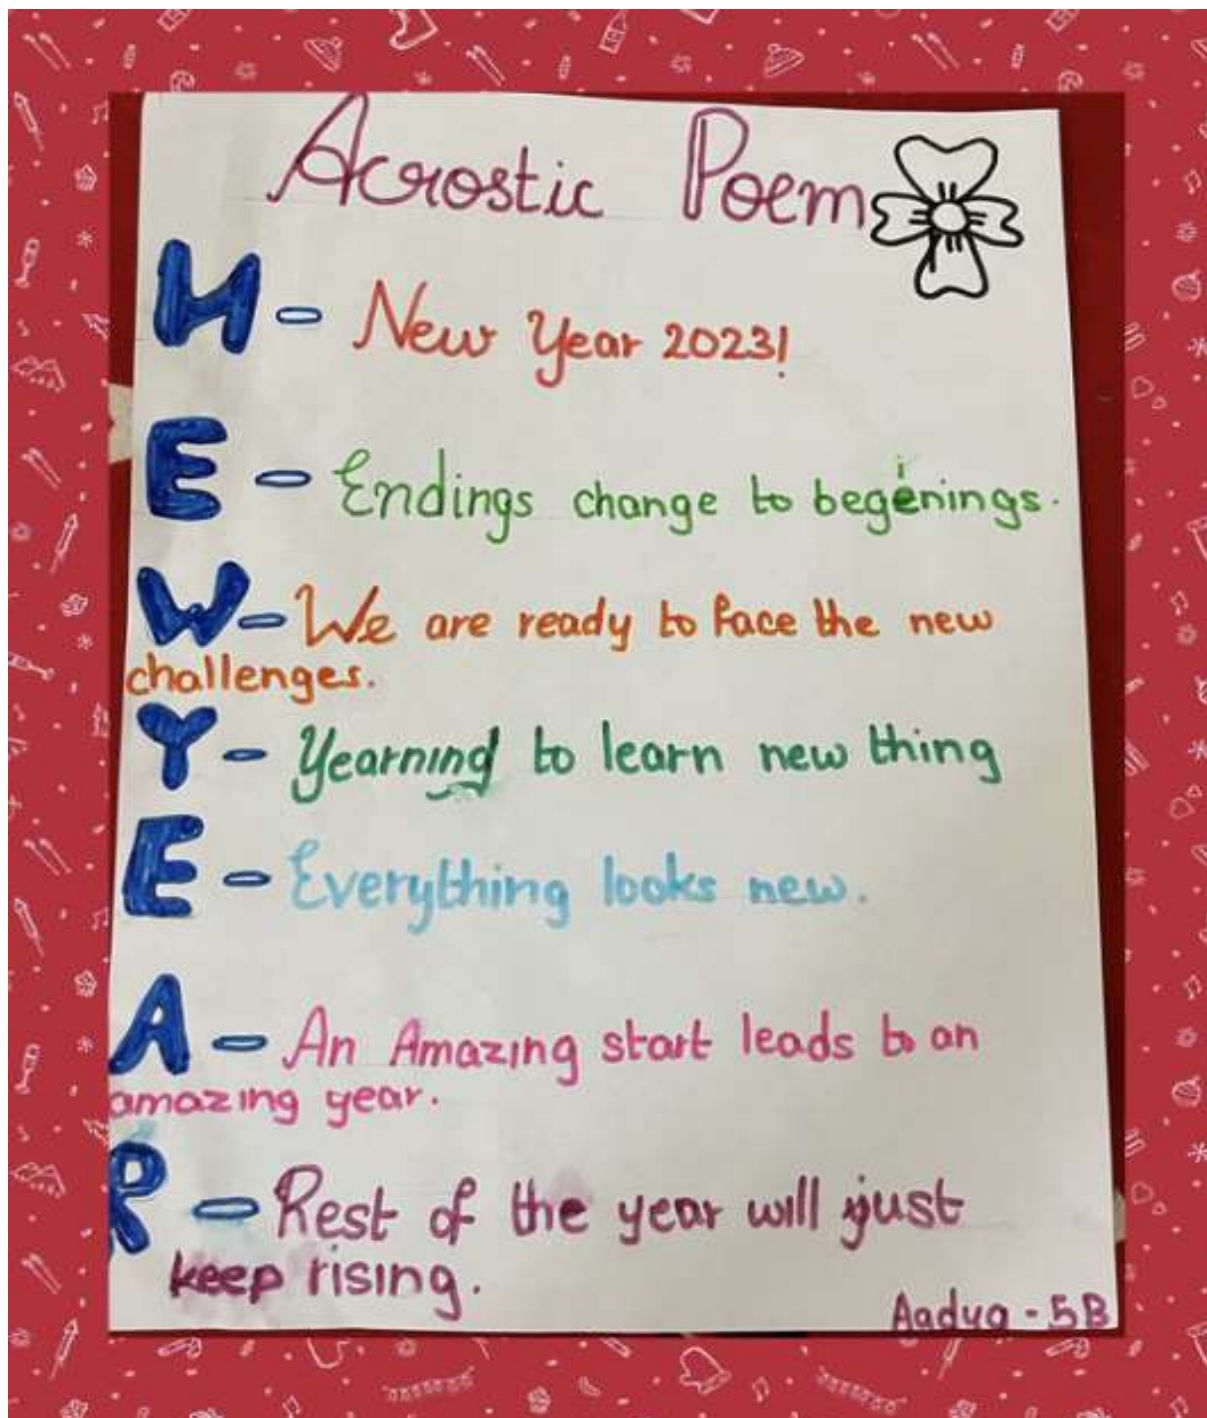 Acrostic Poem
N - New Year 2023!
E - Endings change to beginings.
W - We are ready to face the new
challenges.
Y - Yearning to learn new thing
E - Everything looks new.
A - An Amazing start leads to an
amazing year.
R - Rest of the year will just
keep rising.
Aadya - 5B